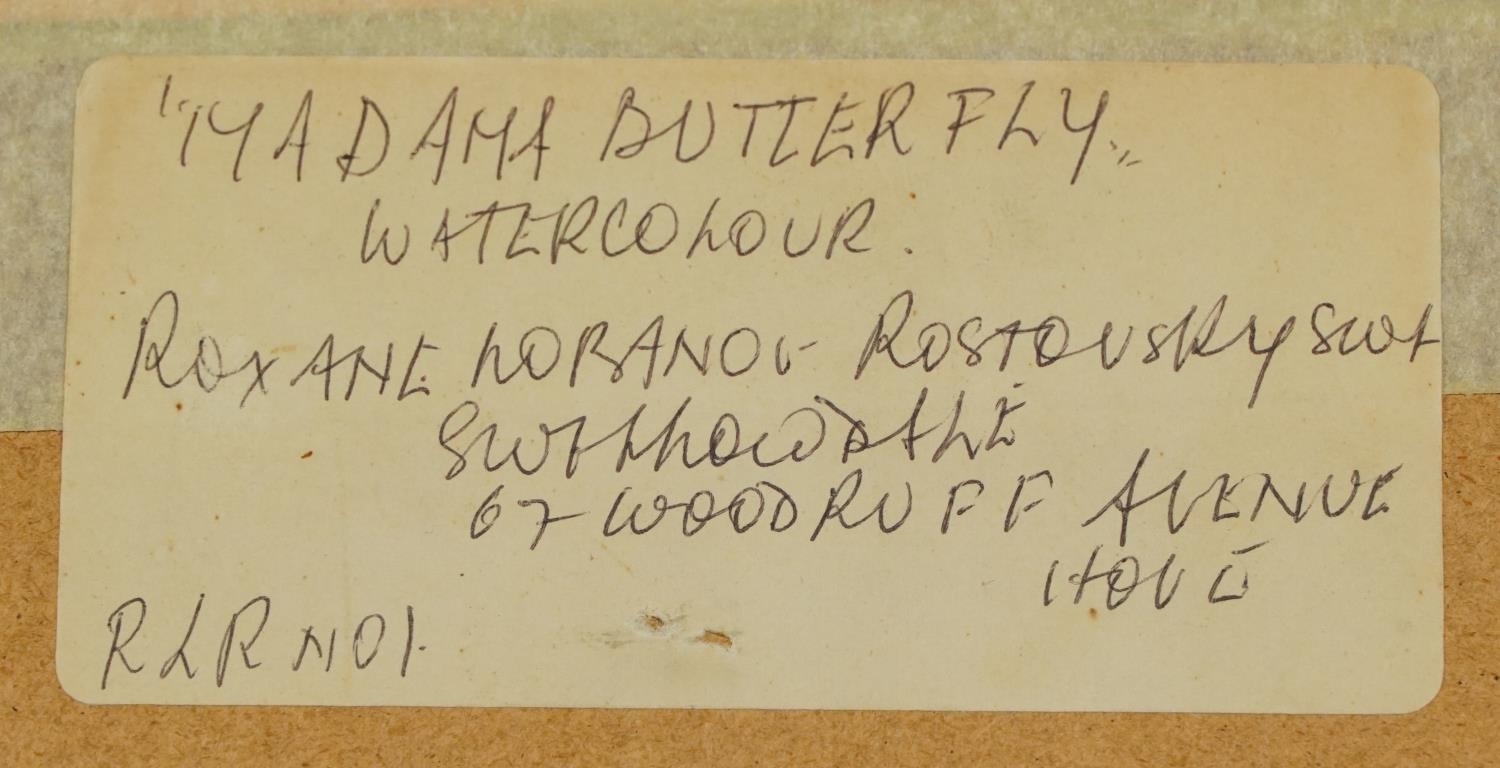 "MADAMA BUTTERFLY"
WATERCOLOUR.
ROXANE LOBANOV-ROSTOVSKY SWA
SWALLOWDALE
67 WOODRUFF AVENUE
HOVE
RLR NO1.